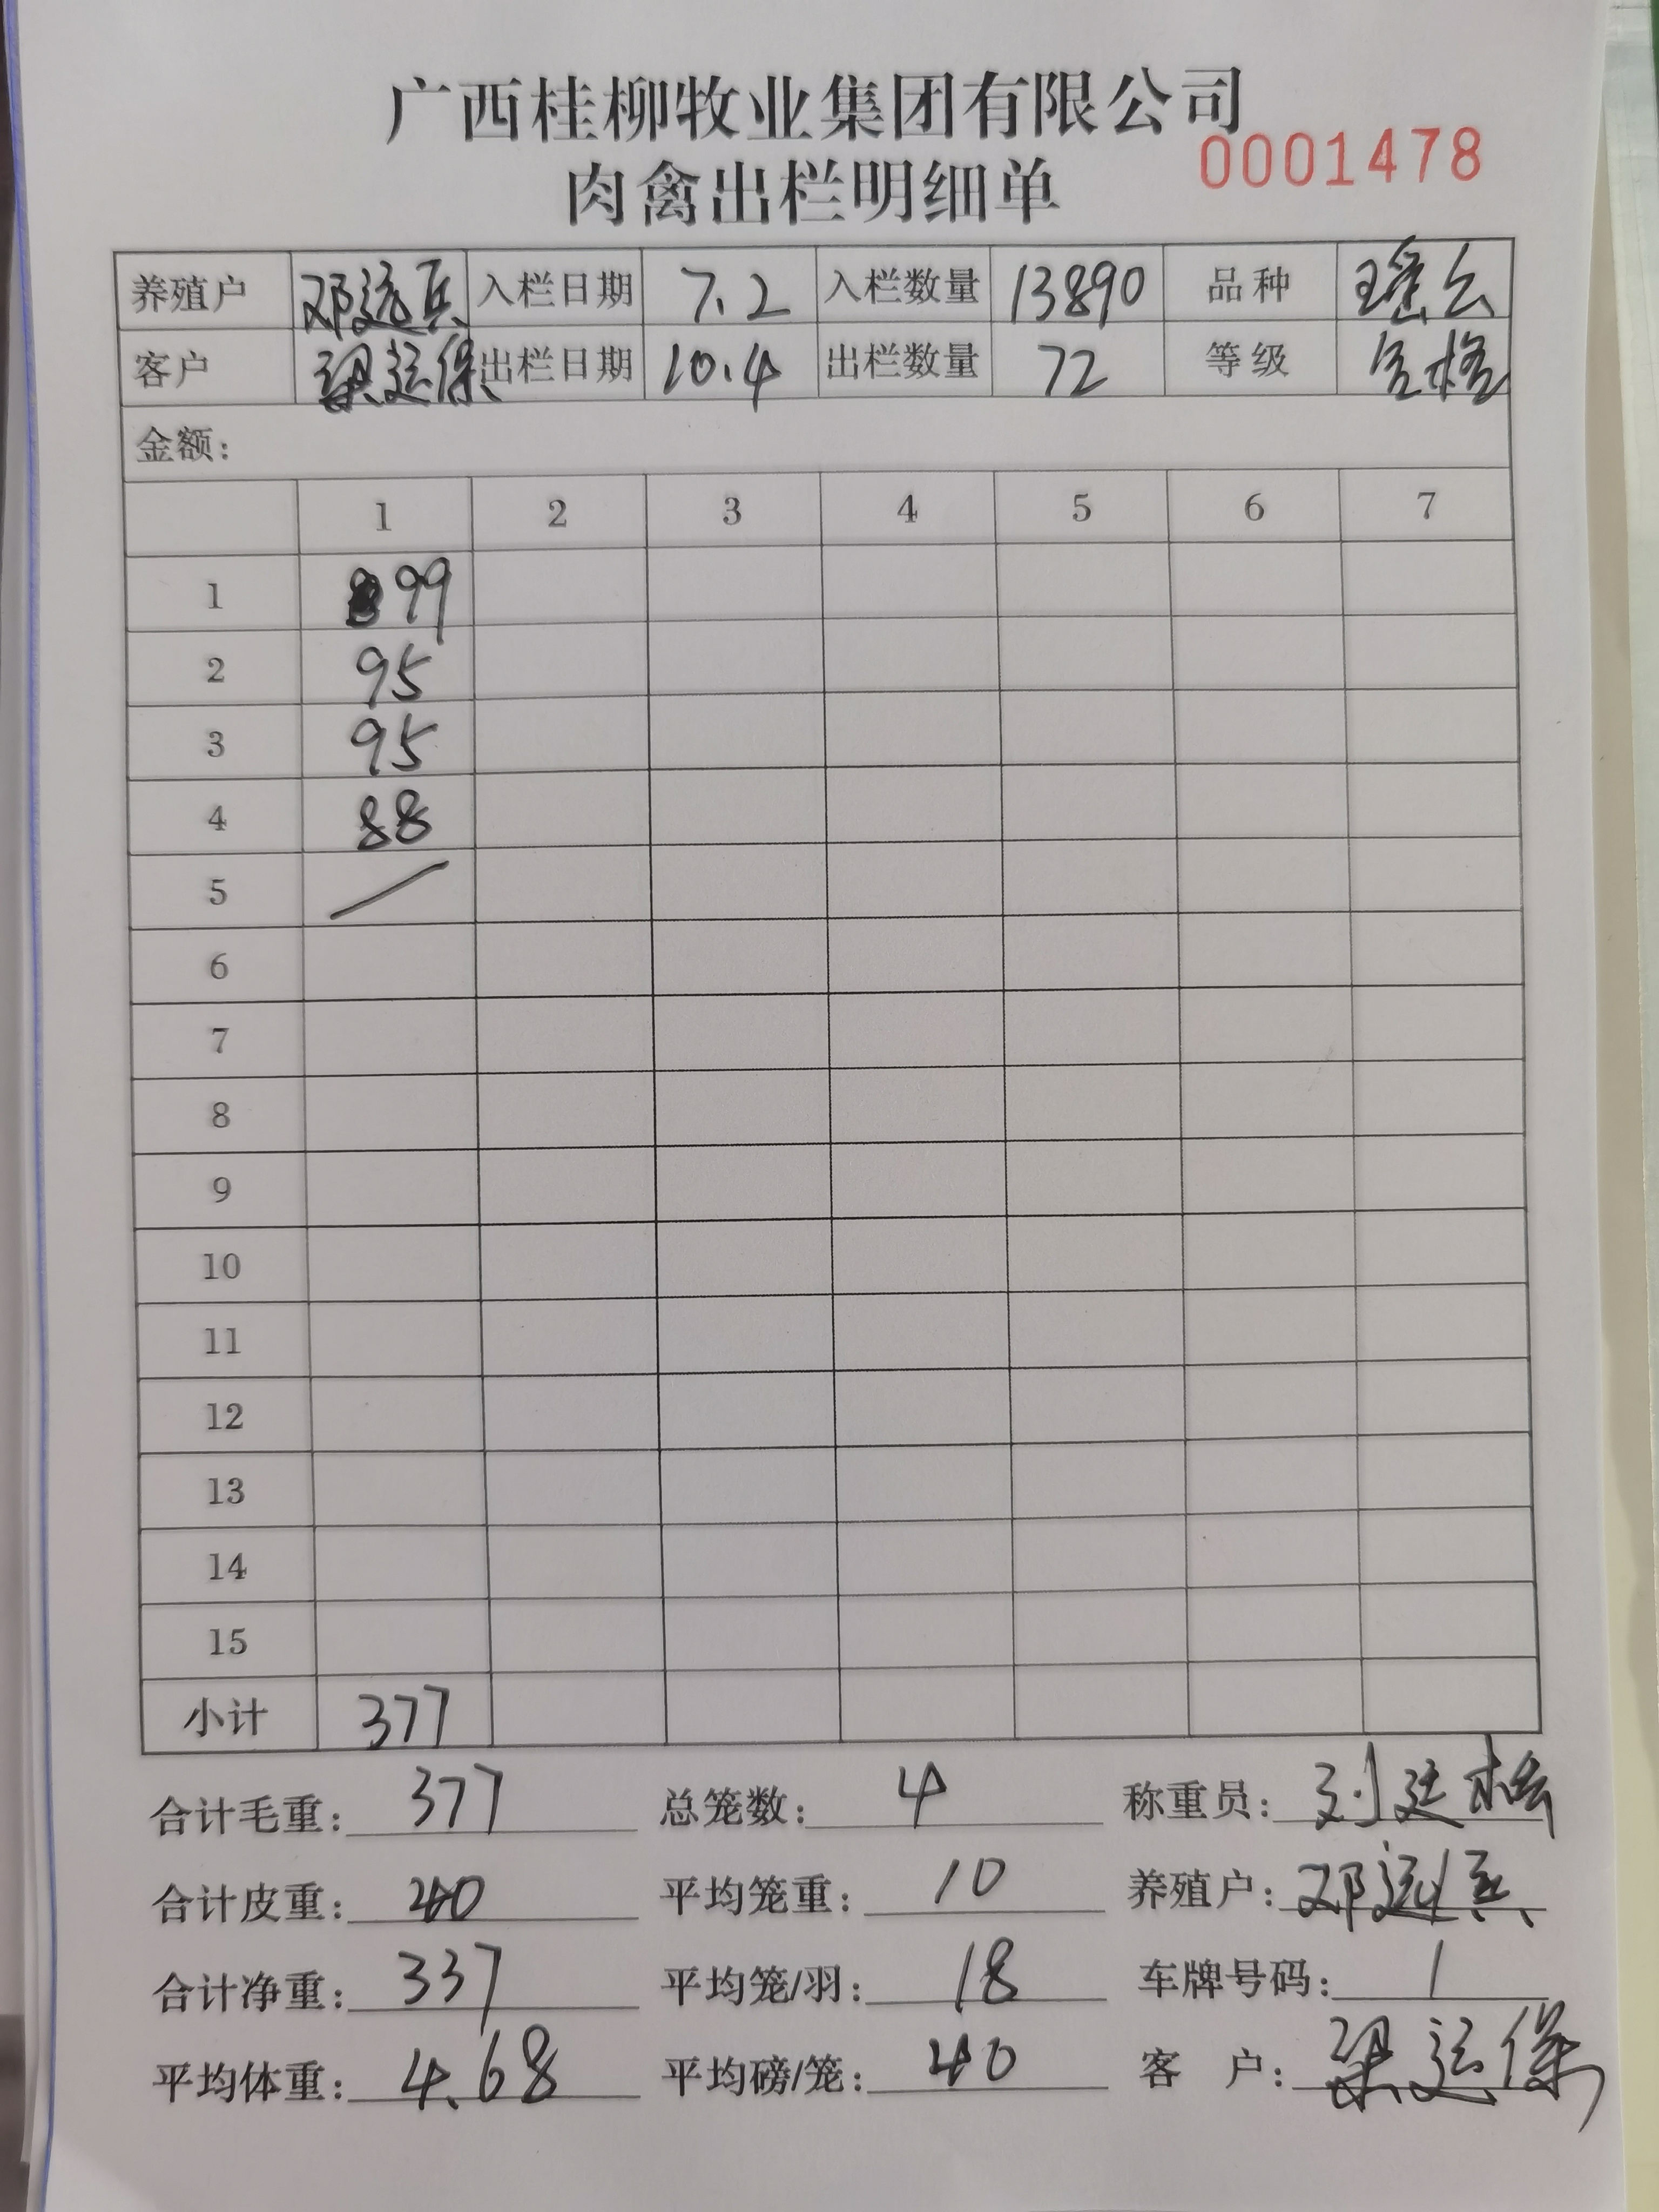 广西桂柳牧业集团有限公司
肉禽出栏明细单 0001478
养殖户 邓远兵 入栏日期 7.2 入栏数量 13890 品种 瑶公
客户 梁运保 出栏日期 10.4 出栏数量 72 等级 合格
金额:
1 2 3 4 5 6 7
1 99
2 95
3 95
4 88
5 /
6
7
8
9
10
11
12
13
14
15
小计 377
合计毛重: 377 总笼数: 4 称重员: 刘廷松
合计皮重: 40 平均笼重: 10 养殖户: 邓远兵
合计净重: 337 平均笼/羽: 18 车牌号码: 1
平均体重: 4.68 平均磅/笼: 40 客 户: 梁运保